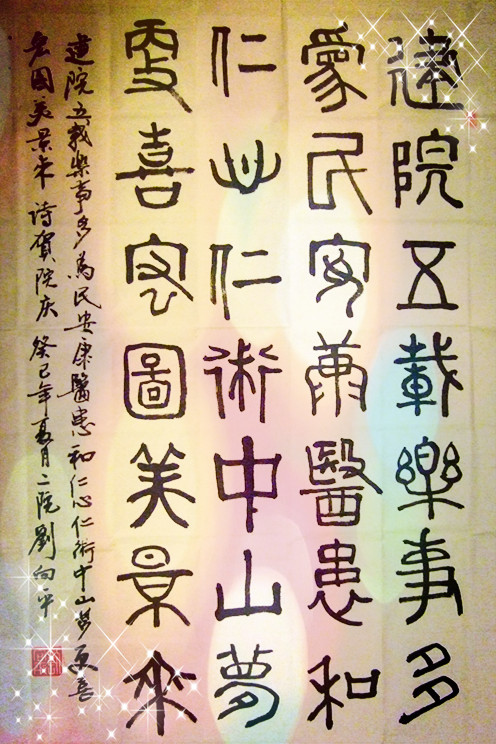 建院五載樂事多
爲民安康醫患和
仁心仁術中山夢
更喜宏圖美景來
建院五載樂事多為民安康醫患和仁心仁術中山夢更喜
宏图美景来诗賀院庆癸巳年夏月二院劉向平